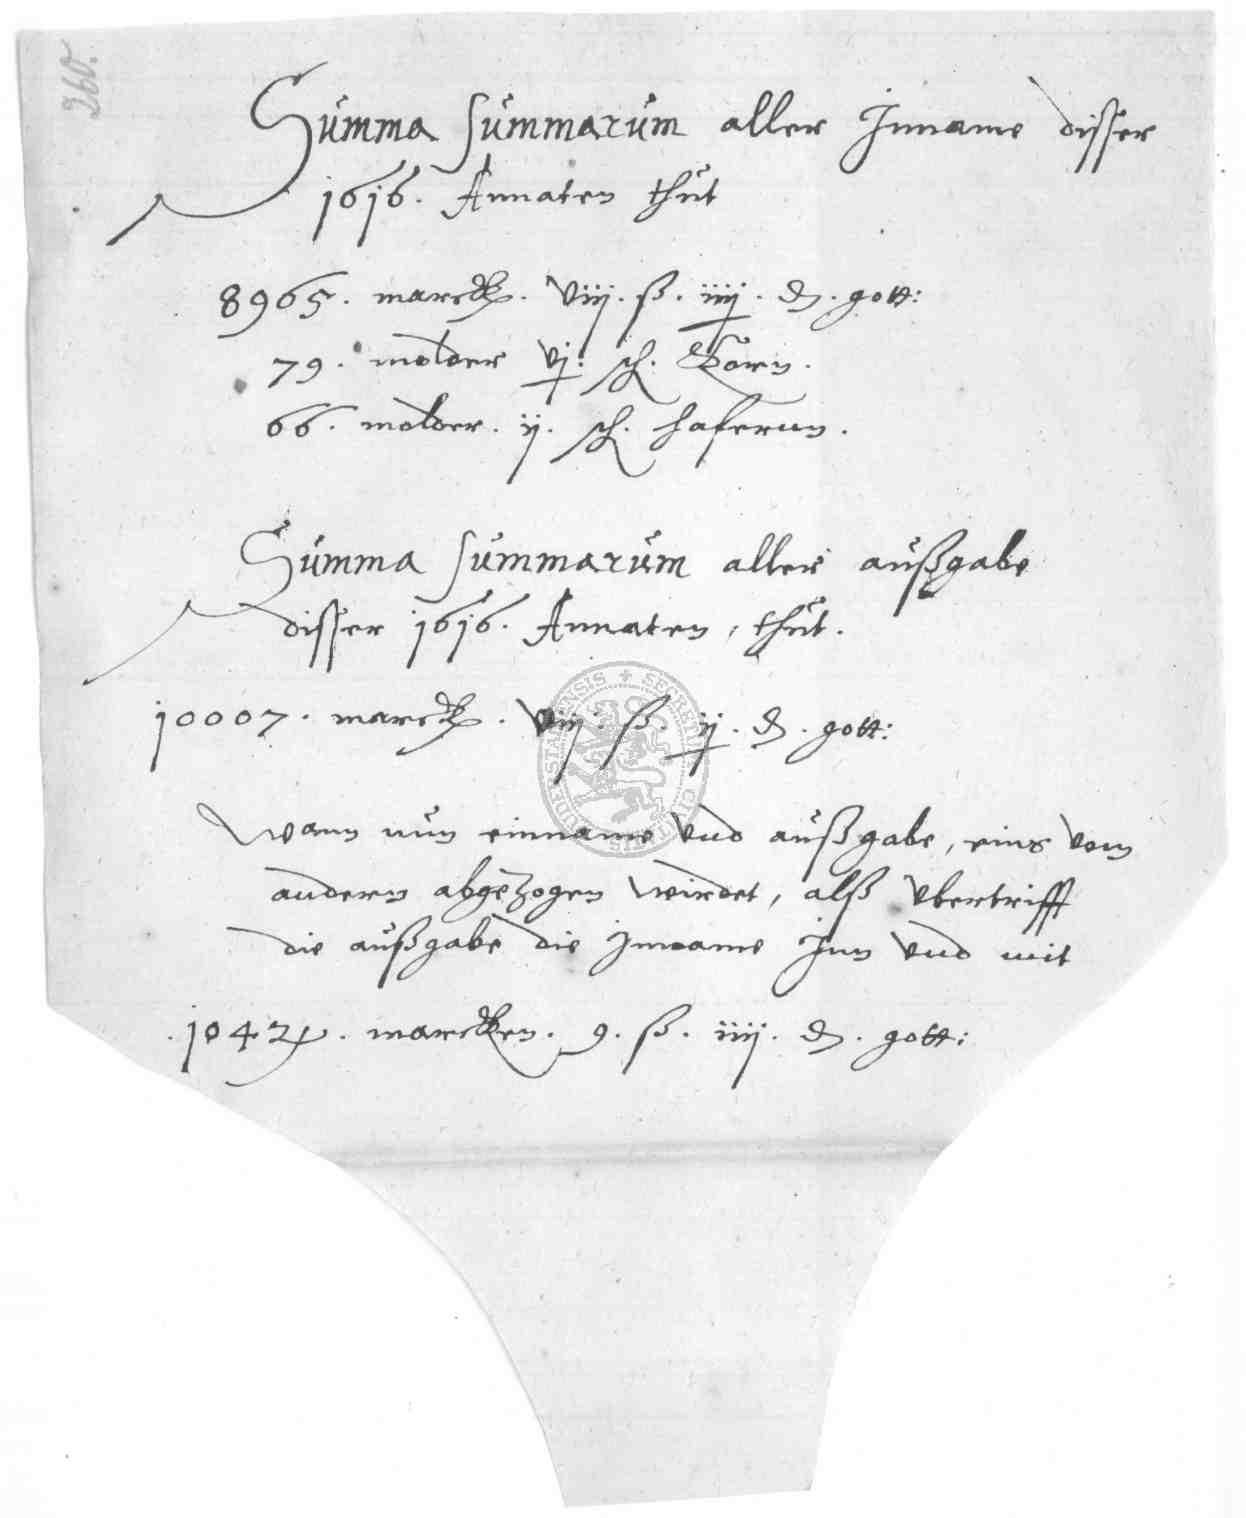 260.
Summa summarum aller Inname disser
1616. Annaten thut
8965. marck. viij. ß. iiij. ₰. gott:
79. molder vj. sch. Korn.
66. molder. ij. sch. hafernn.
Summa summarum aller außgabe
disser 1616. Annaten, thut.
10007. marck. viij. ß. ij. ₰. gott:
Wann nun einname vnd außgabe, eins vom
andern abgezogen wirdet, alß vbertrifft
die außgabe die Inname Inn vnd mit
.1042. marcken. 9. ß. iiij. ₰. gott:
SECRETUM CIVITATIS DUDERSTADENSIS